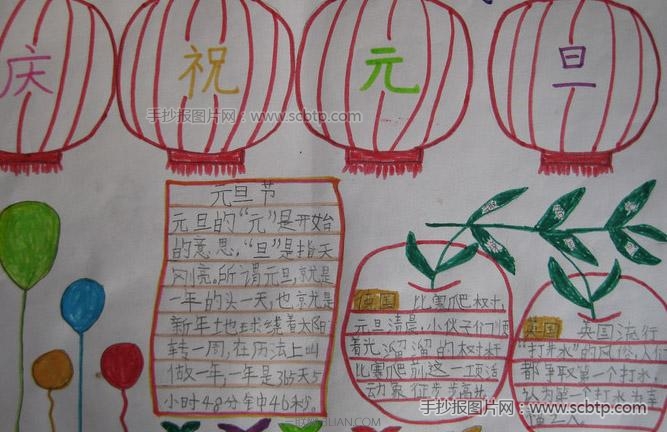 庆 祝 元 旦
手抄报图片网：www.scbtp.com
手抄报图片网：www.scbtp.com
元旦节
元旦的“元”是开始
的意思，“旦”是指天
刚亮。所谓元旦，就是
一年的头一天，也就是
新年地球绕着太阳
转一周，在历法上叫
做一年，一年是365天5
小时48分钟46秒。
德国 比赛爬树
元旦清晨，小伙子们
着光溜溜的树
比赛爬前这一项活
动象征步步高升
英国 英国流行
“打井水”的风俗，人们
都争取第一个打水
认为第一个打水为幸
福之人。
手抄报图片网：www.scbtp.com